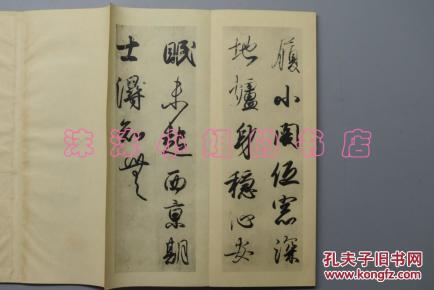 履小閣低窓深
地爐身穩心安
眠未起西京朝
士得知無
孔夫子旧书网
www.kongfz.com